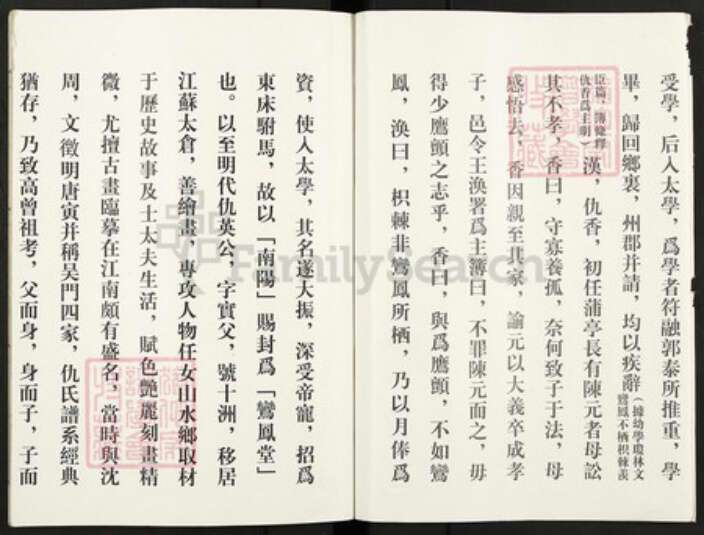 受學，后入太學，爲學者符融郭泰所推重，學
畢，歸回鄉裏，州郡并請，均以疾辭（據幼學瓊林文
臣篇，簿條釋：鸞鳳不栖枳棘羨
仇香爲主明）漢，仇香，初任蒲亭長有陳元者母訟
其不孝，香曰，守寡養孤，奈何致子于法，母
感悟去，香因親至其家，諭元以大義卒成孝
子，邑令王渙署爲主簿曰，不罪陳元而之，毋
得少鷹顫之志乎，香曰，與爲鷹顫，不如鸞
鳳，渙曰，枳棘非鸞鳳所栖，乃以月俸爲
資，使入太學，其名遂大振，深受帝寵，招爲
東床駙馬，故以「南陽」賜封爲「鸞鳳堂」
也。以至明代仇英公，字實父，號十洲，移居
江蘇太倉，善繪畫，專攻人物任女山水鄉取材
于歷史故事及士太夫生活，賦色艷麗刻畫精
微，尤擅古畫臨摹在江南頗有盛名，當時與沈
周，文徵明唐寅并稱吴門四家，仇氏譜系經典
猶存，乃致高曾祖考，父而身，身而子，子而
FamilySearch